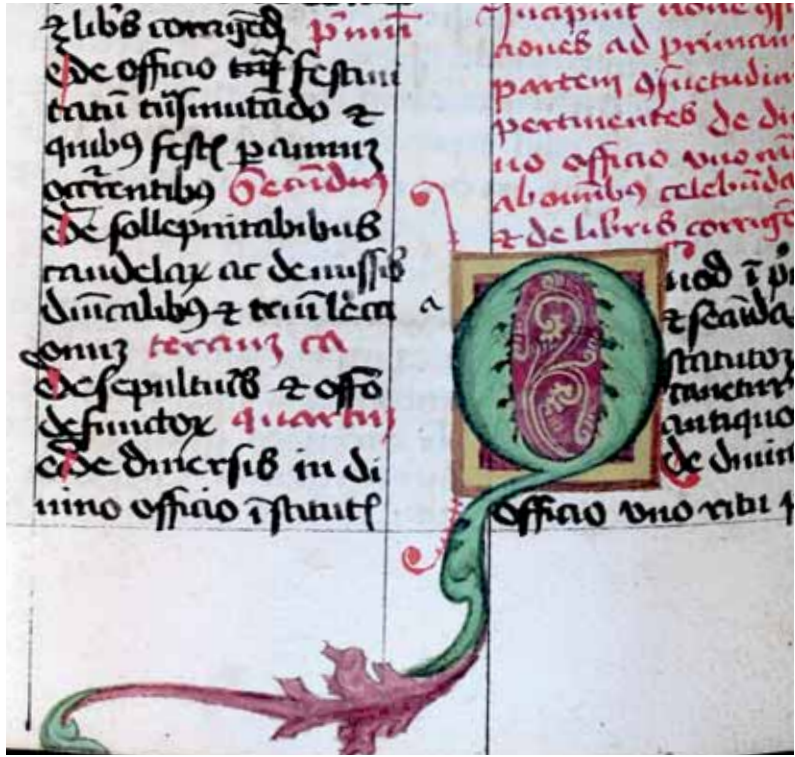 ⁊ lib's corrigēd p'mū
de officio festiui
tatū trāsmutādo ⁊
quibꝰ festꝭ ꝑ annuꝫ
occ'rentibꝰ Secūduꝫ
de sollepnitatibus
candelaꝝ ac de missis
dūicalibꝰ ⁊ triū lēcti
onuꝫ terciuꝫ ca
de sepultur' ⁊ offō
defunctoꝝ quartuꝫ
de diuersis in di
uino officio ī statutꝭ
Incipiunt noue ꝯst
ciones ad primam
partem ꝯsuetudini
pertinentes de di
no officio vno
ab omībꝰ celebrāda
⁊ de libris corrigē
a
Quod ī p'
⁊ secūda
statutoꝝ
antiquo
de diuin
officio vno ritu